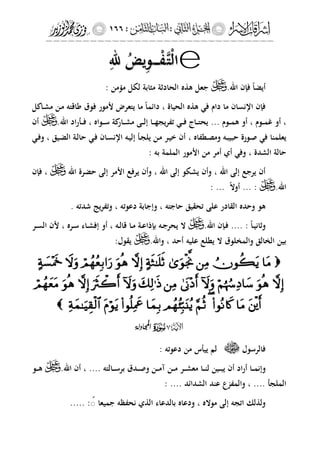 التَّفْوِيضُ لِلَّهِ
أيضاً فإن الله جعل هذه الحادثة مثابة لكل مؤمن :
فإن الإنسان ما دام في هذه الحياة ، دائماً ما يتعرض لأمور فوق طاقته من مشاكل
، أو غموم ، أو هموم ... يحتاج في تفريجها إلى مشاركة سواه ، فأراد الله أن
يعلمنا في صورة حبيبه ومصطفاه ، أن خير من يلجأ إليه الإنسان في حالة الضيق ، وفي
حالة الشدة ، وفي أي أمر من الأمور الملمة به :
أن يرجع إلى الله ، وأن يشكو إلى الله ، وأن يرفع الأمر إلى حضرة الله ، فإن
الله : ... أولاً ...
هو وحده القادر على تحقيق حاجته ، وإجابة دعوته ، وتفريج شدته .
وثانياً : .... فإن الله لا يحرجه بإذاعة ما قاله ، أو إفشاء سره ، لأن السر
بين الخالق والمخلوق لا يطلع عليه أحد ، والله يقول:
﴿ مَا يَكُونُ مِن نَّجْوَىٰ ثَلَٰثَةٍ إِلَّا هُوَ رَابِعُهُمْ وَلَا خَمْسَةٍ
إِلَّا هُوَ سَادِسُهُمْ وَلَا أَدْنَىٰ مِن ذَٰلِكَ وَلَا أَكْثَرَ إِلَّا هُوَ مَعَهُمْ
أَيْنَ مَا كَانُوا ۖ ثُمَّ يُنَبِّئُهُم بِمَا عَمِلُوا يَوْمَ الْقِيَٰمَةِ ﴾
الآية ٧ سورة المجادلة
فالرسول لم ييأس من دعوته :
وإنما أراد أن يبين لنا معشر من آمن وصدق برسالته .... ، أن الله هو
الملجأ .... ، والمفزع عند الشدائد : ....
ولذلك اتجه إلى مولاه ، ودعاه بالدعاء الذي نحفظه جميعا : .....